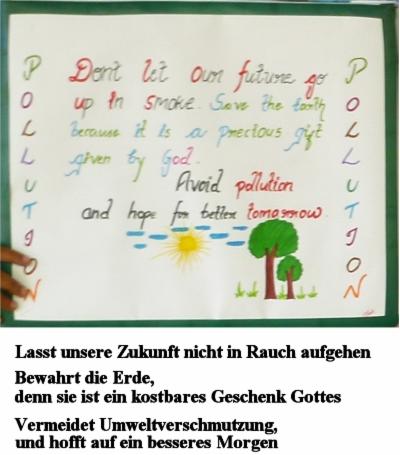 POLLUTION
Dont let our future go
up in smoke. Save the Earth
because it is a precious gift
given by God.
Avoid pollution
and hope for better tomorrow.
POLLUTION
Lasst unsere Zukunft nicht in Rauch aufgehen
Bewahrt die Erde,
denn sie ist ein kostbares Geschenk Gottes
Vermeidet Umweltverschmutzung,
und hofft auf ein besseres Morgen